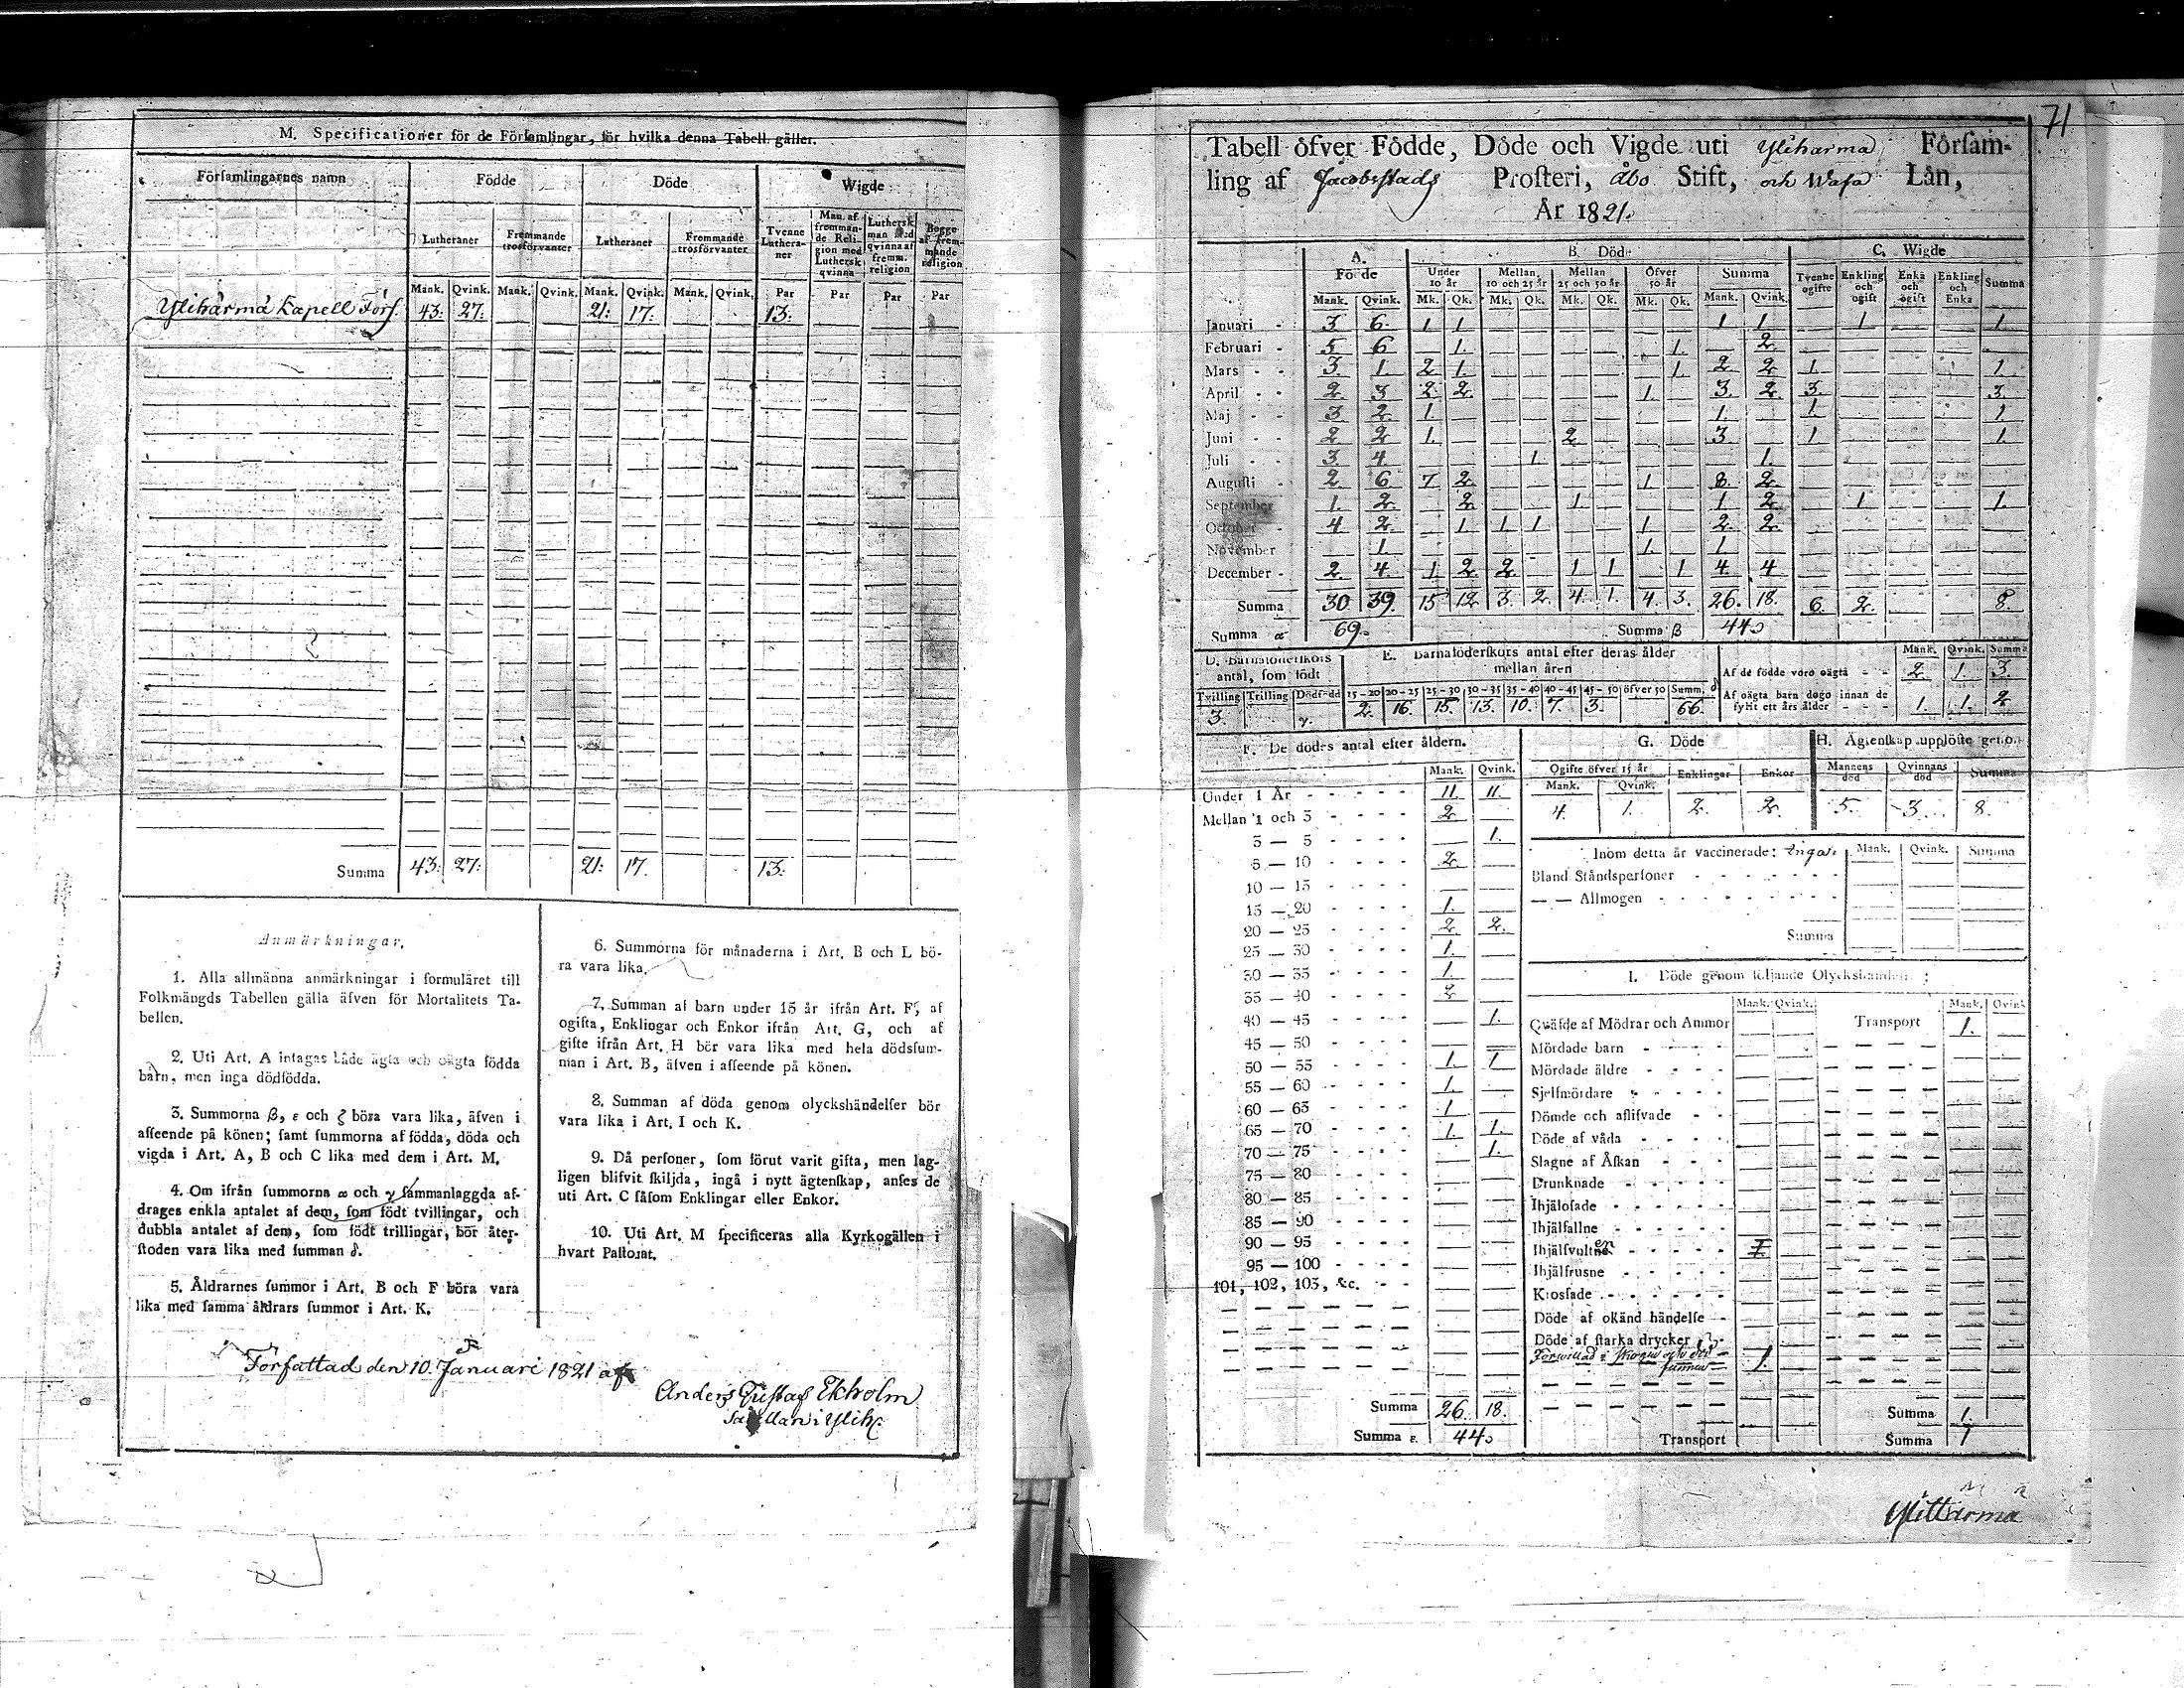 M. Specificationer för de Församlingar, för hvilka denna Tabell gäller.
Församlingarnes namn Födde Döde Wigde
Lutheraner Fremmande trosförvanter Lutheraner Fremmande trosförvanter Tvenne Lutheraner Man af fremmande Religion med Luthersk qvinna Luthersk man med qvinna af fremm. religion Bägge af fremmande religion
Mank. Qvink. Mank. Qvink. Mank. Qvink. Mank. Qvink. Par Par Par Par
Ylihärmä Kapell Förs. 43. 27. 21. 17. 13.
Summa 43. 27. 21. 17. 13.
Anmärkningar.
1. Alla allmänna anmärkningar i formuläret till
Folkmängds Tabellen gälla äfven för Mortalitets Ta-
bellen.
2. Uti Art. A intagas både ägta och oägta födda
barn, men inga dödfödda.
3. Summorna β, ε och ζ böra vara lika, äfven i
afſeende på könen; ſamt ſummorna af födda, döda och
vigda i Art. A, B och C lika med dem i Art. M.
4. Om ifrån ſummorna α och γ ſammanlaggda af-
drages enkla antalet af dem, ſom födt tvillingar, och
dubbla antalet af dem, ſom födt trillingar, bör åter-
ſtoden vara lika med ſumman δ.
5. Åldrarnes ſummor i Art. B och F böra vara
lika med ſamma åldrars ſummor i Art. K.
6. Summorna för månaderna i Art. B och L bö-
ra vara lika.
7. Summan af barn under 15 år ifrån Art. F, af
ogifta, Enklingar och Enkor ifrån Art. G, och af
gifte ifrån Art. H bör vara lika med hela dödsſum-
man i Art. B, äfven i afſeende på könen.
8. Summan af döda genom olyckshändelſer bör
vara lika i Art. I och K.
9. Då perſoner, ſom förut varit gifta, men lag-
ligen blifvit ſkiljda, ingå i nytt ägtenſkap, anſes de
uti Art. C ſåſom Enklingar eller Enkor.
10. Uti Art. M ſpecificeras alla Kyrkogällen i
hvart Paſtorat.
Författad den 10 Januari 1821 af
Anders Gustaf Ekholm
71
Tabell öfver Födde, Döde och Vigde uti Ylihärmä Förſam-
ling af Jacobstads Proſteri, Åbo Stift, och Wasa Län,
År 1821.
A. Födde B. Död C. Wigde
Under 10 år Mellan 10 och 25 år Mellan 25 och 50 år Öfver 50 år Summa Tvenne ogifte Enkling och ogift Enka och ogift Enkling och Enka Summa
Mank. Qvink. Mk. Qk. Mk. Qk. Mk. Qk. Mk. Qk. Mank. Qvink.
Januari 3 6 1 1 1 1 1 1
Februari 5 6 1. 1. 2
Mars 3. 1. 2 1. 1. 2 2 1. 1
April 2 3 2 2 1. 3 2 3. 3.
Maj 3 2 1. 1. 1. 1
Juni 2 2 1. 2 3 1 1.
Juli 3. 4. 1. 1.
Auguſti 2 6 7 2 1 8 2
September 1. 2 2 1. 1 2 1 1.
October 4 2 1 1 1 1 2 2
November 1. 1. 1
December 2. 4. 1 2 2 1 1 1 4 4
Summa 30 39. 15 12 3. 2 4. 1. 4. 3. 26. 18. 6. 2. 8.
Summa α 69. Summa β 44
D. Barnaföderſkors antal, ſom födt
Tvilling Trilling Dödfödd
3. γ.
E. Barnaföderſkors antal efter deras ålder mellan åren
15-20 20-25 25-30 30-35 35-40 40-45 45-50 öfver 50 Summ. δ
2. 16. 15. 13. 10. 7. 3. 66.
Mank. Qvink. Summa
Af de födde voro oägta 2 1. 3
Af oägta barn dogo innan de fyllt ett års ålder 1. 1. 2
F. De dödes antal efter åldern.
Mank. Qvink.
Under 1 År 11 11.
Mellan 1 och 3 2
3 — 5 1.
5 — 10 2
10 — 15
15 — 20 1.
20 — 25 2 2.
25 — 30 1.
30 — 35 1.
35 — 40 2
40 — 45 1.
45 — 50
50 — 55 1. 1
55 — 60 1.
60 — 65 1
65 — 70 1. 1.
70 — 75 1.
75 — 80
80 — 85
85 — 90
90 — 95
95 — 100
101, 102, 103, &c.
Summa 26. 18.
Summa ε. 44
G. Döde
Ogifte öfver 15 år Enklingar Enkor
Mank. Qvink.
4. 1. 2. 2.
H. Ägtenſkap upplöſte geno
Mannens död Qvinnans död Summa
5. 3. 8.
Inom detta år vaccinerade: Inga. Mank. Qvink. Summa
Bland Ståndsperſoner
— — Allmogen
Summa
I. Döde genom följande Olyckshändel
Mank. Qvink. Mank. Qvink
Qväfde af Mödrar och Ammor Transport 1.
Mördade barn
Mördade äldre
Sjelfmördare
Dömde och aflifvade
Döde af våda
Slagne af Åſkan
Drunknade
Ihjälofade
Ihjälfallne
Ihjälfvultne
Ihjälfrusne
Krosſade
Döde af okänd händelſe
Döde af ſtarka drycker
1.
Summa 1.
Transport Summa 1
Ylihärmä